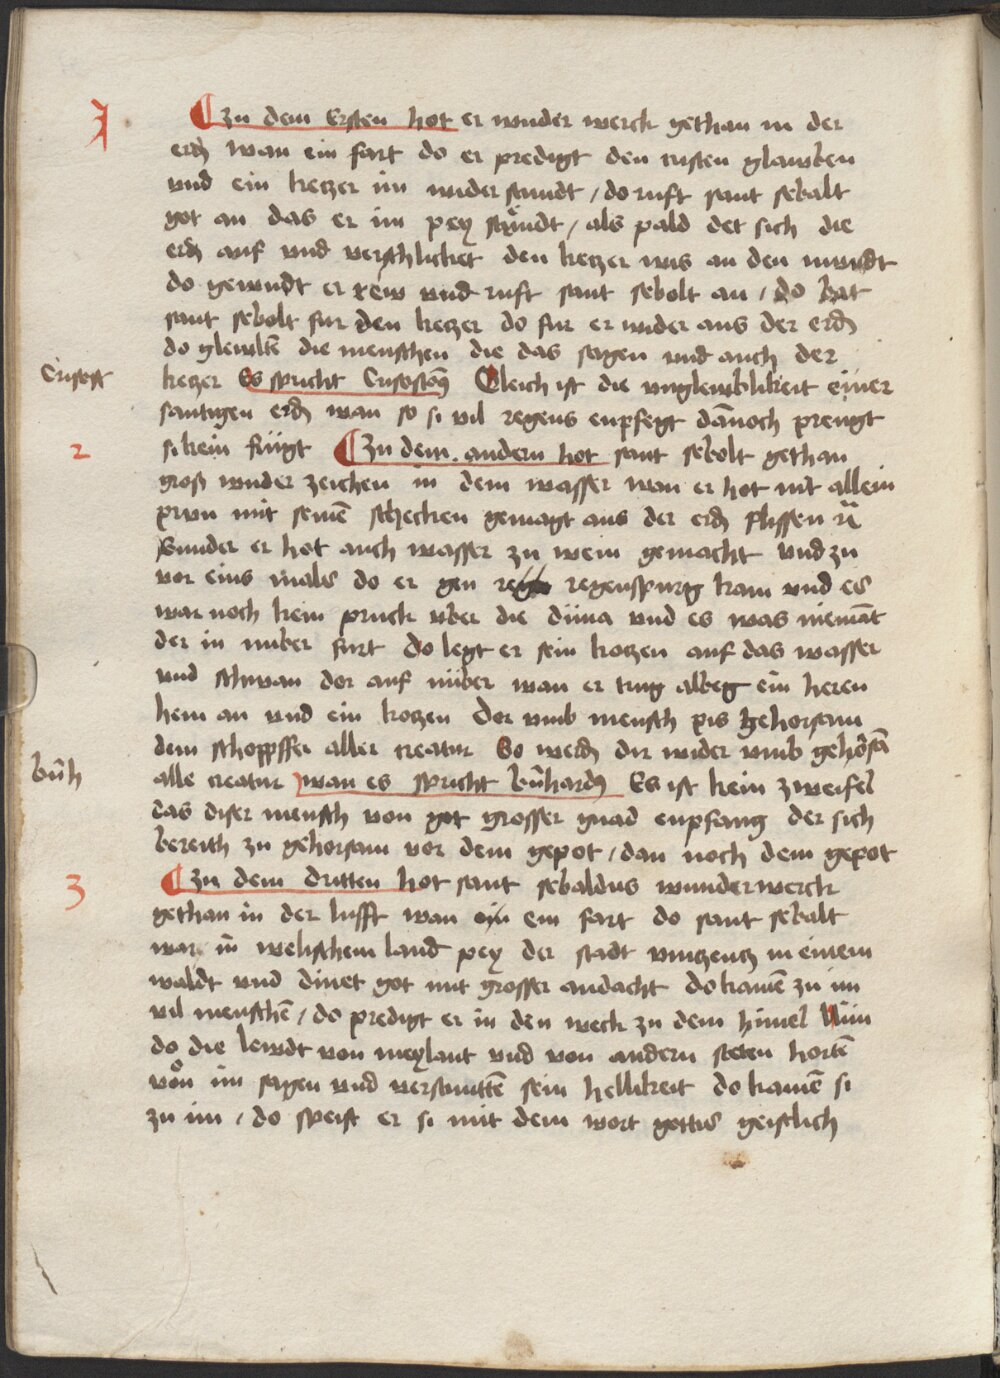 1
¶ zu dem Ersten hot er wnder werck gethan in der
erd wan ein fart do er predigt den cristen glawben
vnd ein keczer im wider stundt / do ruft sant sebalt
got an das er im pey stündt / als pald det sich die
erd auf vnd verschlicket den keczer wis an den mundt
do gewndt er rew vnd ruft sant sebolt an / do bat
sant sebolt fur den keczer do fur er wider aus der erd
do glewbtē die menschen die das sagen vnd auch der
Crisost
keczer Es spricht Crisostomꝰ Gleich ist die vnglewblikeit einer
santigen erd wan so si vil regens enpfegt dānoch prengt
2
si kein frügt ¶ Zu dem andern hot sant sebolt gethan
groß wnder zeichen in dem wasser wan er hot nit allein
prvn mit seinē stecken gemagt aus der erd flissen
svnder er hot auch wasser zu wein gemacht vnd zu
vor eins mals do er gen regenspurg kam vnd es
war noch kein pruck vber die düna vnd es was niemāt
der in vuber furt do legt er sein koczen auf das wasser
vnd schwan dor auf nüber wan er trug albeg ein heren
hem an vnd ein koczen Dor vmb mensch pis gehorsam
dem schoppffer aller creatur So werd dir wider vmb gehorsā
bn̄h
alle creatur wan es spricht bn̄hardꝰ Es ist kein zweifel
das diser mensch von got grosser gnad enpfang der sich
bereith zu gehorsam vor dem gepot / dan noch dem gepot
3
¶ Zu dem dritten hot sant sebaldus wunderwerck
gethan in der lufft wan ein fart do sant sebalt
war in welischem land pey der stadt vinczencz in einem
waldt vnd dinet got mit grosser andacht do kamē zu im
vil menschē / do predigt er in den weck zu dem himel Nün
do die lewdt von meylant vnd von andern steten hortē
von im sagen vnd vernumē sein hellikeit do kamē si
zu im / do speist er si mit dem wort gottis geistlich